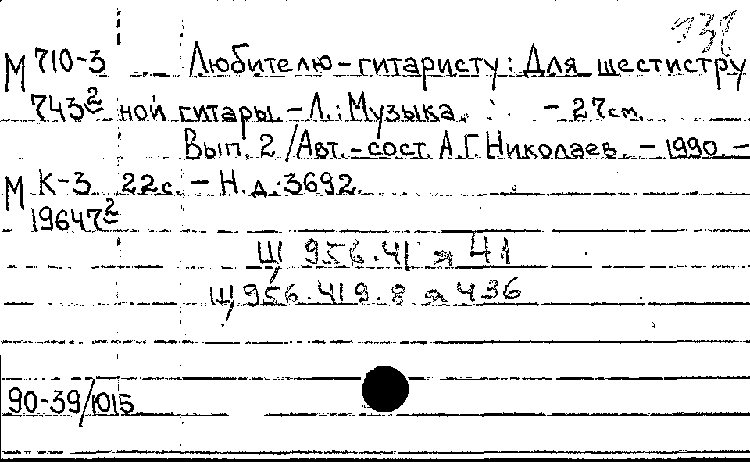 138
М 710-3 Любителю-гитаристу: Для шестистру
743² ной гитары. – Л.: Музыка. – 27см.
Вып. 2 / Авт.-сост. А.Г. Николаев. – 1990. –
М К-3 22с. – Н. д. 3692.
19647²
Щ 956.41 я 41
Щ 956.419.8 я 436
90-39/1015